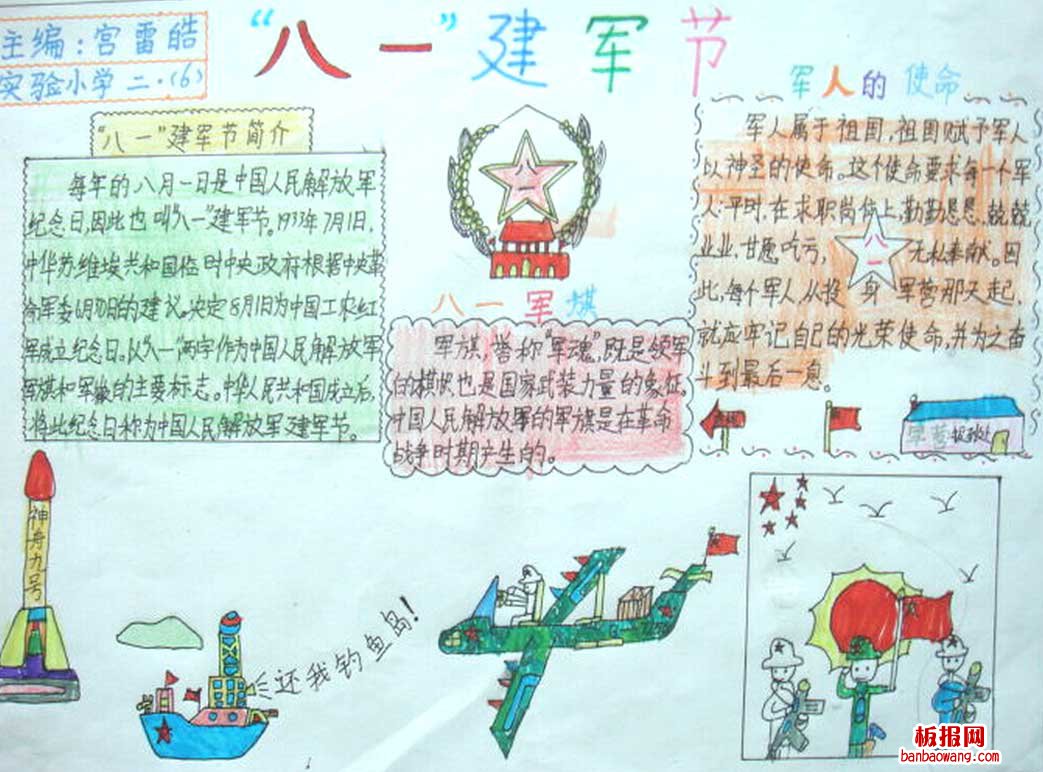 主编:宫雷皓
实验小学 二·(6)
“八一”建军节
“八一”建军节简介
每年的八月一日是中国人民解放军
纪念日,因此也叫“八一”建军节。1933年7月1日,
中华苏维埃共和国临时中央政府根据中央革
命军委6月30日的建议。决定8月1日为中国工农红
军成立纪念日。以“八一”两字作为中国人民解放军
军旗和军徽的主要标志。中华人民共和国成立后,
将此纪念日称为中国人民解放军建军节。
八一
八一军堪
军旗,誉称“军魂”,既是领军
的棋帜也是国家武装力量的象征。
中国人民解放军的军旗是在革命
战争时期产生的。
军人的使命
军人属于祖国,祖国赋予军人
以神圣的使命。这个使命要求每一个军
人:平时,在求职岗位上,勤勤恳恳,兢兢
业业,甘愿吃亏,无私奉献。因
八一
此,每个军人,从投身军营那天起,
就应牢记自己的光荣使命,并为之奋
斗到最后一息。
神舟九号
还我钓鱼岛!
板报网
banbaowang.com